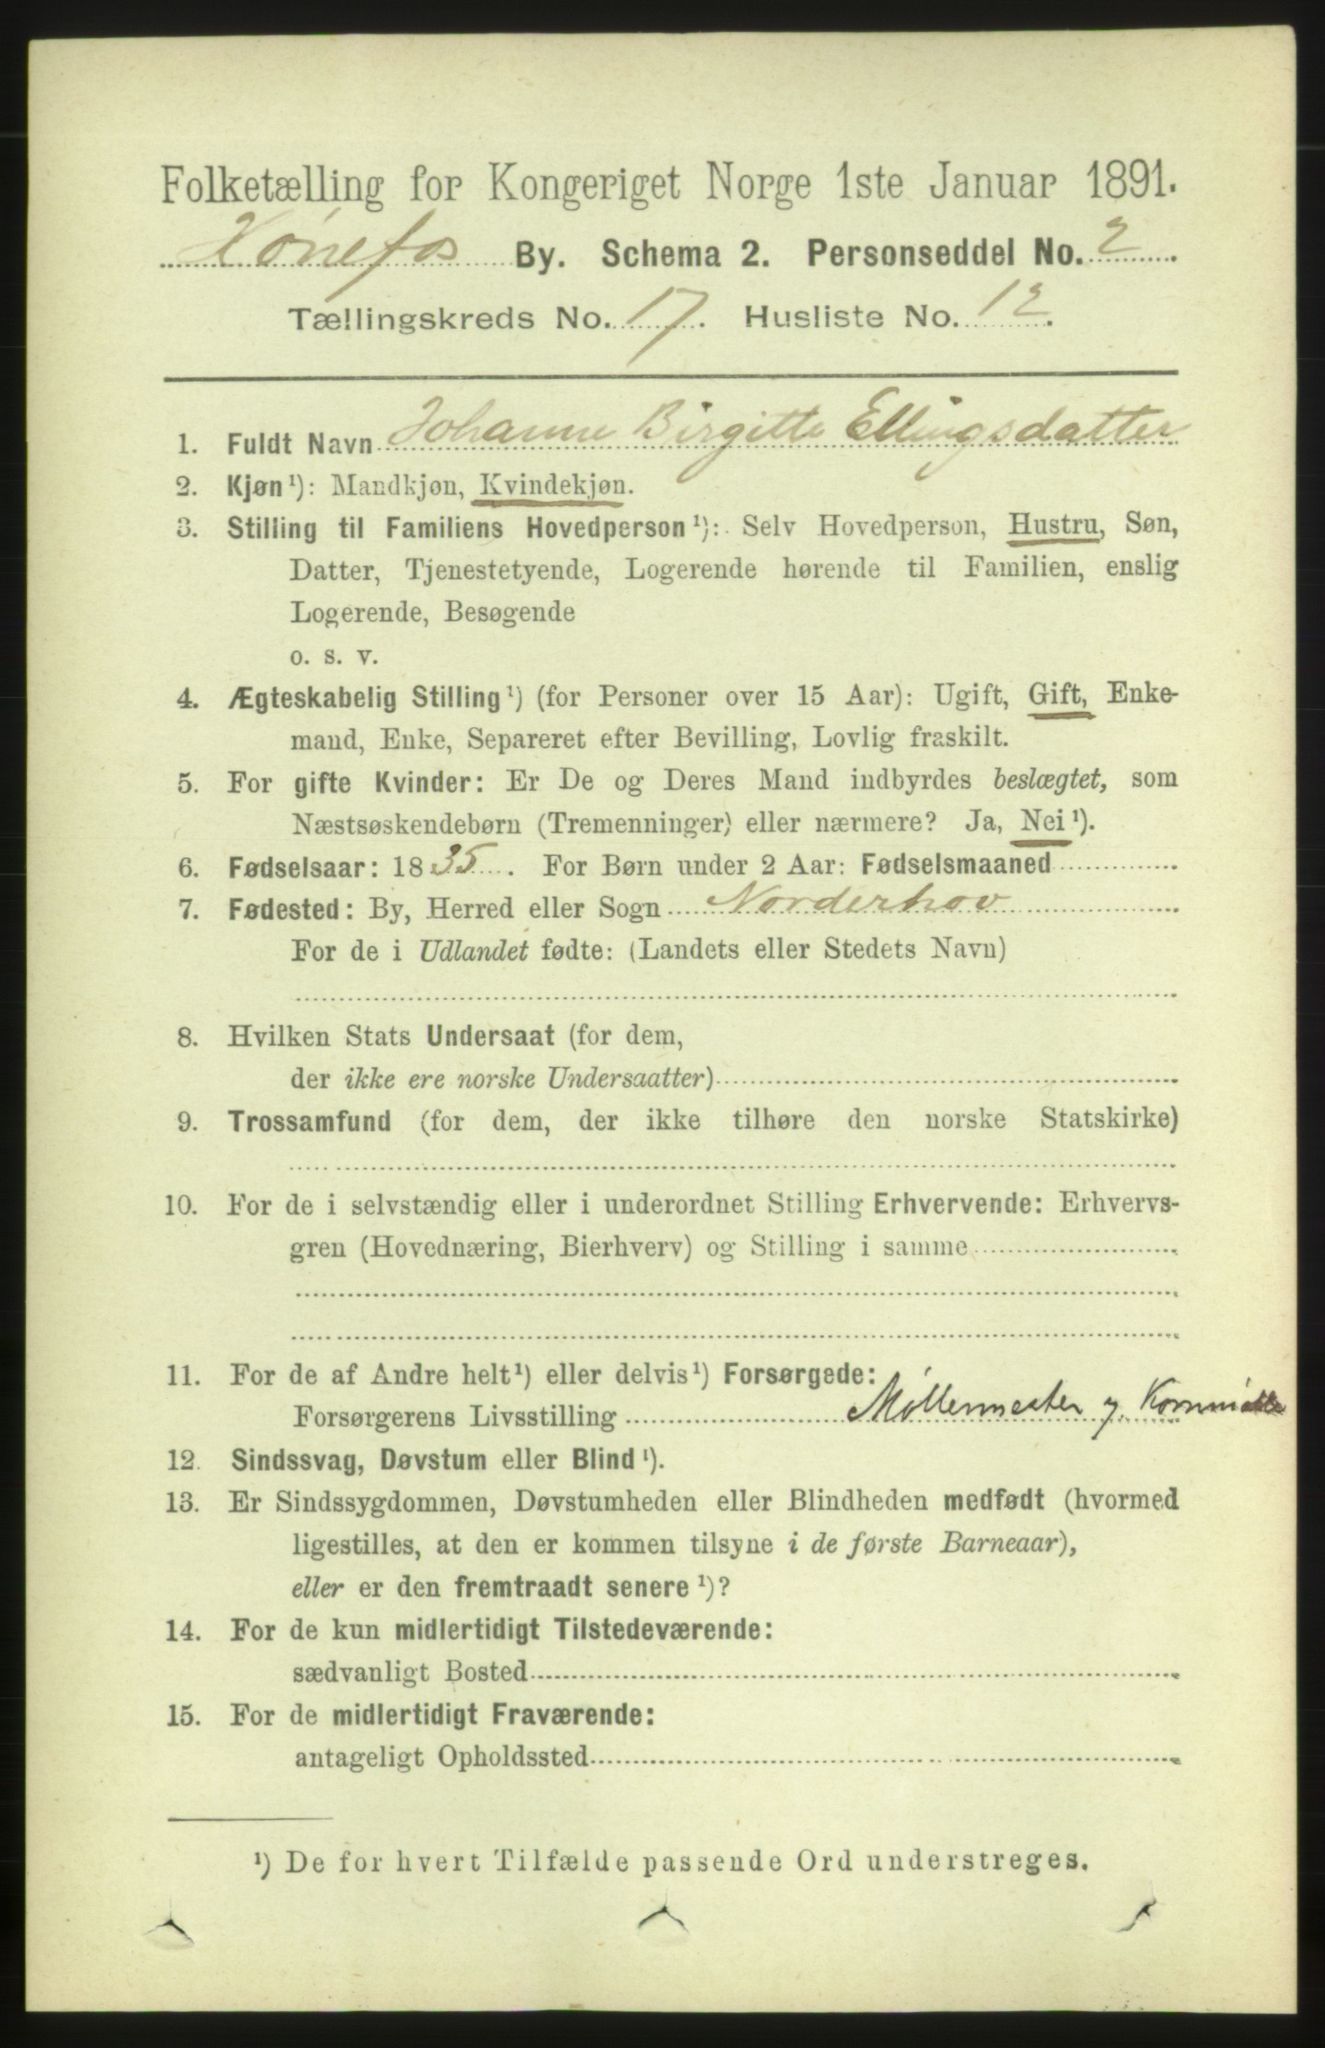 Folketælling for Kongeriget Norge 1ste Januar 1891.
Hønefos By. Schema 2. Personseddel No. 2.
Tællingskreds No. 17. Husliste No. 12.
1. Fuldt Navn Johanne Birgitte Ellingsdatter
2. Kjøn ¹): Mandkjøn, Kvindekjøn.
3. Stilling til Familiens Hovedperson ¹): Selv Hovedperson, Hustru, Søn,
Datter, Tjenestetyende, Logerende hørende til Familien, enslig
Logerende, Besøgende
o. s. v.
4. Ægteskabelig Stilling ¹) (for Personer over 15 Aar): Ugift, Gift, Enke-
mand, Enke, Separeret efter Bevilling, Lovlig fraskilt.
5. For gifte Kvinder: Er De og Deres Mand indbyrdes beslægtet, som
Næstsøskendebørn (Tremenninger) eller nærmere? Ja, Nei ¹).
6. Fødselsaar: 1835. For Børn under 2 Aar: Fødselsmaaned
7. Fødested: By, Herred eller Sogn Norderhov
For de i Udlandet fødte: (Landets eller Stedets Navn)
8. Hvilken Stats Undersaat (for dem,
der ikke ere norske Undersaatter)
9. Trossamfund (for dem, der ikke tilhøre den norske Statskirke)
10. For de i selvstændig eller i underordnet Stilling Erhvervende: Erhvervs-
gren (Hovednæring, Bierhverv) og Stilling i samme
11. For de af Andre helt ¹) eller delvis ¹) Forsørgede:
Forsørgerens Livsstilling Møllermester
12. Sindssvag, Døvstum eller Blind ¹).
13. Er Sindssygdommen, Døvstumheden eller Blindheden medfødt (hvormed
ligestilles, at den er kommen tilsyne i de første Barneaar),
eller er den fremtraadt senere ¹)?
14. For de kun midlertidigt Tilstedeværende:
sædvanligt Bosted
15. For de midlertidigt Fraværende:
antageligt Opholdssted
¹) De for hvert Tilfælde passende Ord understreges.